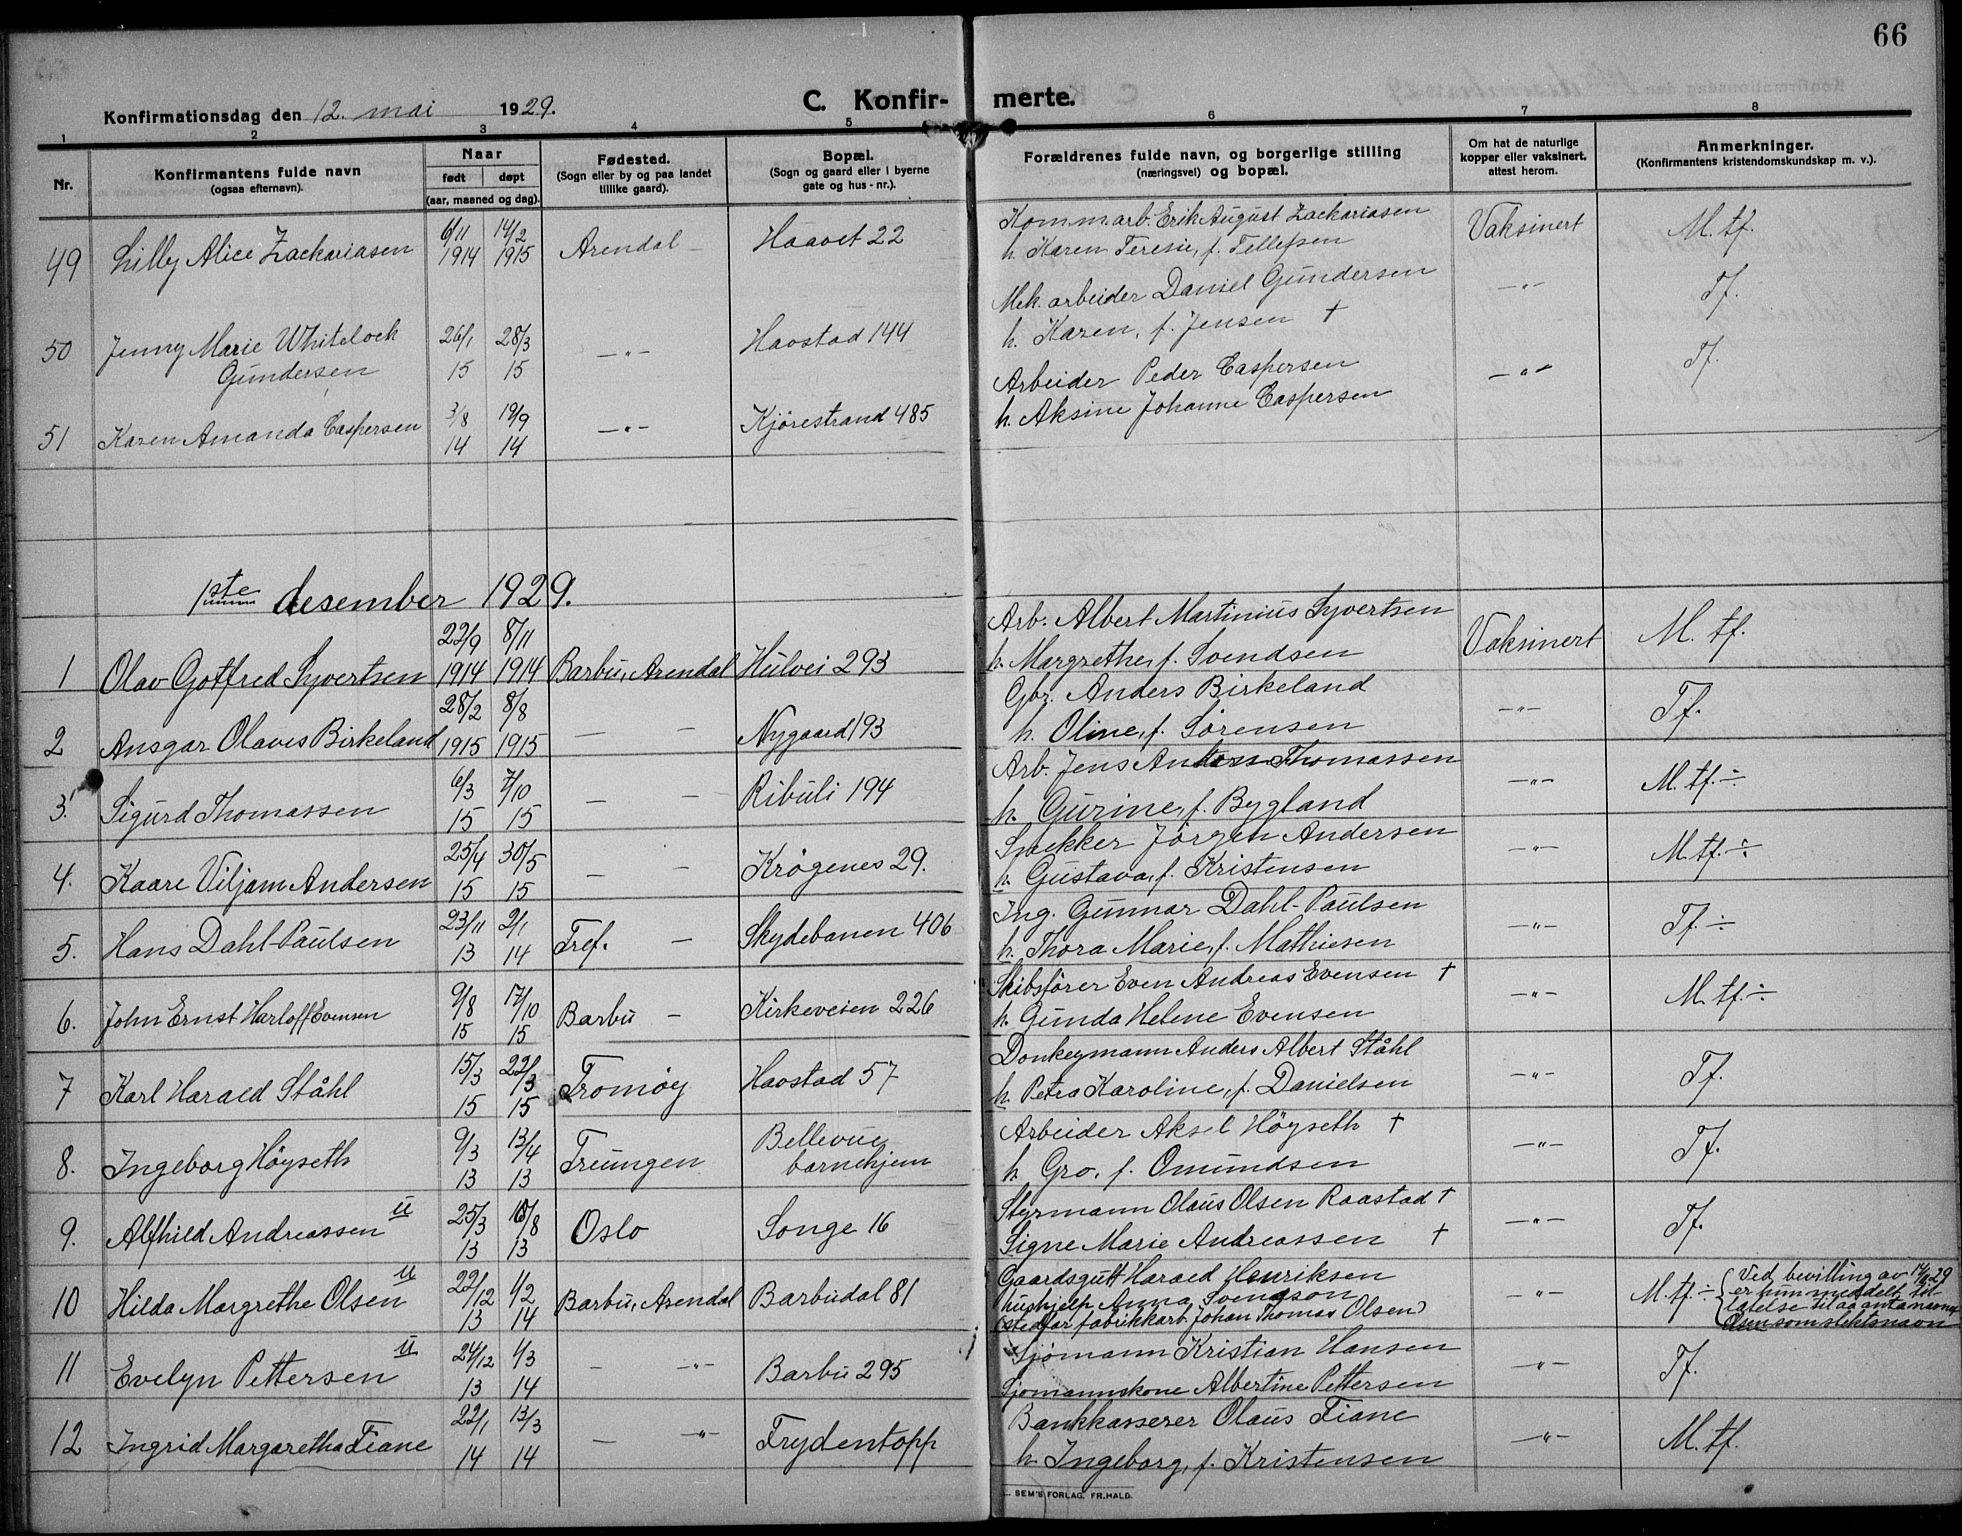 66
Konfirmationsdag den 12. mai 1929.
C. Konfirmerte.
1 2 3 4 5 6 7 8
Nr.
Konfirmantens fulde navn
(ogsaa efternavn).
Naar
født døpt
(aar, maaned og dag).
Fødested.
(Sogn eller by og paa landet
tillike gaard).
Bopæl.
(Sogn og gaard eller i byerne
gate og hus-nr.).
Forældrenes fulde navn, og borgerlige stilling
(næringsvei) og bopæl.
Om hat de naturlige
kopper eller vaksinert,
attest herom.
Anmerkninger.
(Konfirmantens kristendomskundskap m. v.).
49 Lilly Alice Zackariasen 6/11 1914 14/2 1915 Arendal Haavet 22
Komm.arb. Erik August Zackariasen
h. Karen Teresie, f. Tellefsen
Vaksinert M. tf.
50 Jenny Marie Whitelock
Gundersen
26/1 15 28/3 15 —"— Havstad 144
Mek. arbeider Daniel Gundersen
h. Karen, f. Jensen †
—"— Tf.
51 Karen Amanda Caspersen 3/8 14 19/9 14 —"— Kjørestrand 485
Arbeider Peder Caspersen
h. Aksine Johanne Caspersen
—"— Tf.
1ste desember 1929.
1 Olav Gotfred Syvertsen 22/9 1914 8/11 1914 Barbu, Arendal Hulvei 293
Arb. Albert Martinius Syvertsen
h. Margrethe, f. Svendsen
Vaksinert M. tf.
2 Ansgar Olaves Birkeland 28/2 1915 8/8 1915 — — Nygaard 193
Gbr. Anders Birkeland
h. Oline, f. Sørensen
—"— Tf.
3. Sigurd Thomassen 6/3 15 7/10 15 — — Ribuli 194
Arb. Jens Anders Thomassen
h. Gurine, f. Bygland
—"— M. tf. ÷
4. Kaare Viljam Andersen 25/4 15 30/5 15 — — Krøgenes 29.
Snekker Jørgen Andersen
h. Gustava, f. Kristensen
—"— M. tf. ÷
5. Hans Dahl-Paulsen 23/11 13 2/1 14 Tref. — Skydebanen 406
Ing. Gunnar Dahl-Paulsen
h. Thora Marie, f. Mathiesen
—"— Tf. ÷
6. John Ernst Harloff Evensen 9/8 15 17/10 15 Barbu — Kirkeveien 226
Skibsfører Even Andreas Evensen †
h. Gunda Helene Evensen
—"— M. tf. ÷
7 Karl Harald Ståhl 15/3 15 22/3 15 Tromøy Havstad 57
Donkeymann Anders Albert Ståhl
h. Petra Karoline, f. Danielsen
—"— Tf.
8. Ingeborg Høyseth 9/3 13 13/4 13 Treungen Bellevue
barnehjem
Arbeider Aksel Høyseth †
h. Gro, f. Omundsen
—"— Tf.
9. Alfhild Andreassen u 25/3 13 10/8 13 Oslo Songe 16
Styrmann Olaus Olsen Raastad †
Signe Marie Andreassen †
—"— Tf.
10 Hilda Margrethe Olsen u 22/12 13 1/2 14 Barbu, Arendal Barbudal 81
Gaardsgutt Harald Henriksen
hushjelp Anna Svendson
(stedfar fabrikkarb. Johan Thomas Olsen)
—"— M. tf. ÷
Ved bevilling av 29
er hun meddelt til-
latelse til aa anta navnet
Olsen som slektsnavn
11 Evelyn Pettersen u 24/12 13 1/3 14 — —"— Barbu 295
Sjømann Kristian Hansen
Sjømannskone Albertine Pettersen
—"— Tf.
12 Ingrid Margaretha Fiane 22/1 14 13/3 14 — —"— Frydentopp
Bankkasserer Olaus Fiane
h. Ingeborg, f. Kristensen
—"— M. tf.
SEM'S FORLAG. FR.HALD.